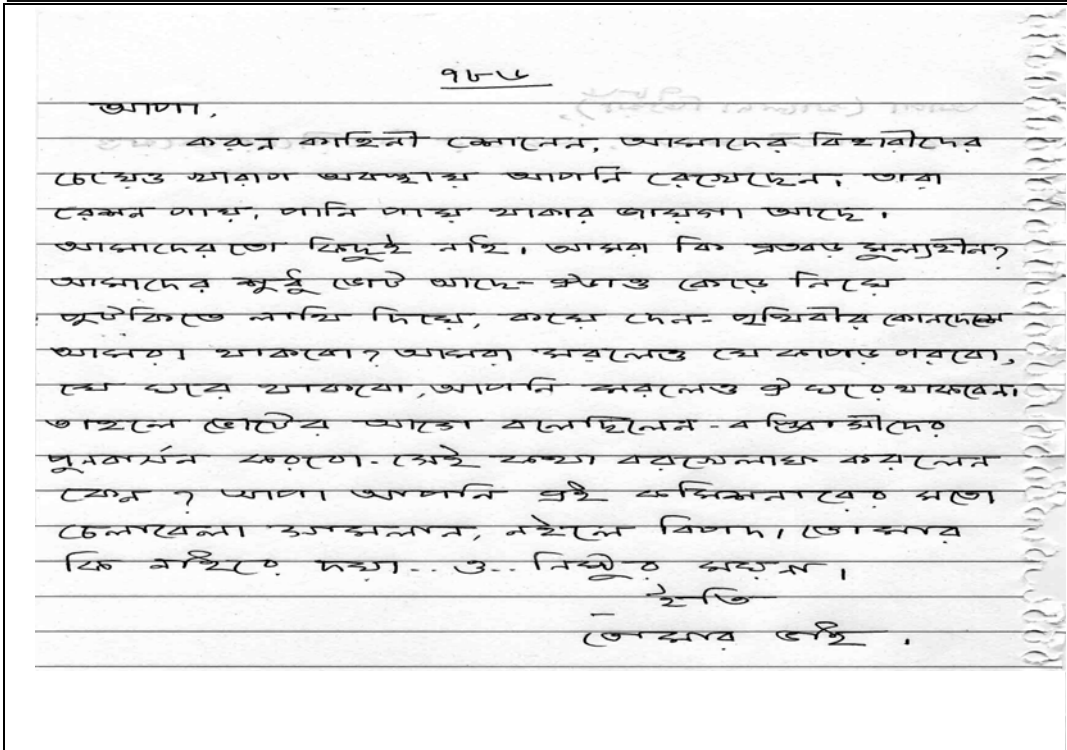 ৭৮৬
আপা,
করুন কাহিনী শোনেন, আমাদের বিহারীদের
চেয়েও খারাপ অবস্থায় আপনি রেখেছেন। তারা
রেশন পায়, পানি পায় থাকার জায়গা আছে।
আমাদেরতো কিছুই নাই। আমরা কি এতবড় মুল্যহীন?
আমাদের শুধু ভোট আছে- ঐটাও কেড়ে নিয়ে
পুটকিতে লাথি দিয়ে, কয়ে দেন- পৃথিবীর কোনদেশে
আমরা থাকবো? আমরা মরলেও যে কাপড় পরবো,
যে ঘরে থাকবো, আপনি মরলেও ঐ ঘরে থাকবেন।
তাহলে ভোটের আগে বলেছিলেন - বস্তিবাসীদের
পুনর্বাসন করবো- সেই কথা বরখেলাফ করলেন
কেন ? আপা আপনি এই কমিশনারের মতো
চেলাবেলা সামলান, নইলে বিপদ। তোমার
কি নাইরে দয়া.. ও.. নিষ্ঠুর ময়না।
ইতি
তোমার ভাই।